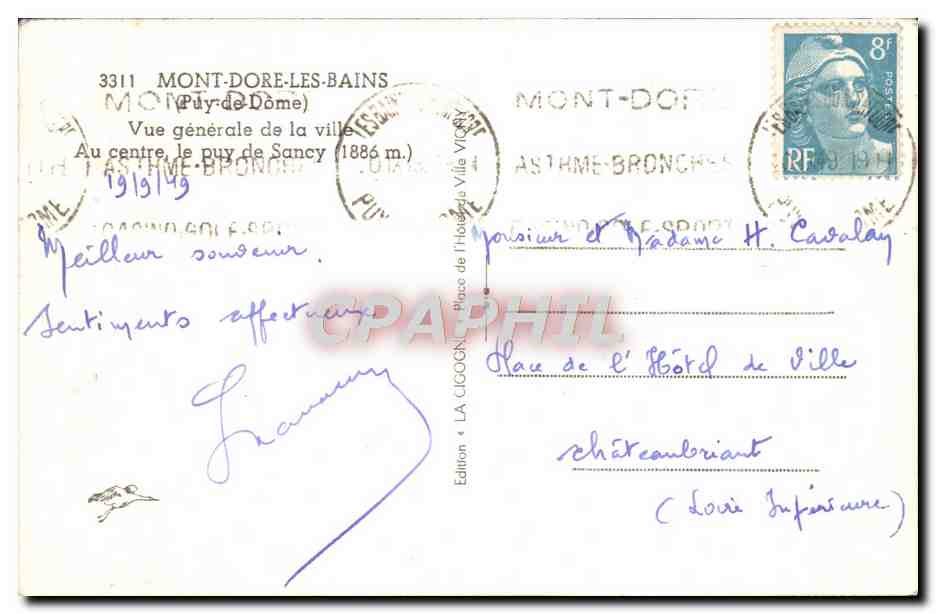 3311 MONT-DORE-LES-BAINS
(Puy-de-Dôme)
Vue générale de la ville
Au centre, le puy de Sancy (1886 m.)
19/9/49
Meilleur souvenir.
Sentiments affectueux
8f
POSTES
RF
MONT-DORE
ASTHME-BRONCHES
CASINO-GOLF-SPORT
MONT-DORE
ASTHME-BRONCHES
CASINO-GOLF-SPORT
Monsieur et Madame H. Cavalay
Place de l'Hôtel de Ville
Châteaubriant
(Loire Inférieure)
Edition « LA CIGOGNE Place de l'Hôtel de Ville VICHY
CPAPHIL